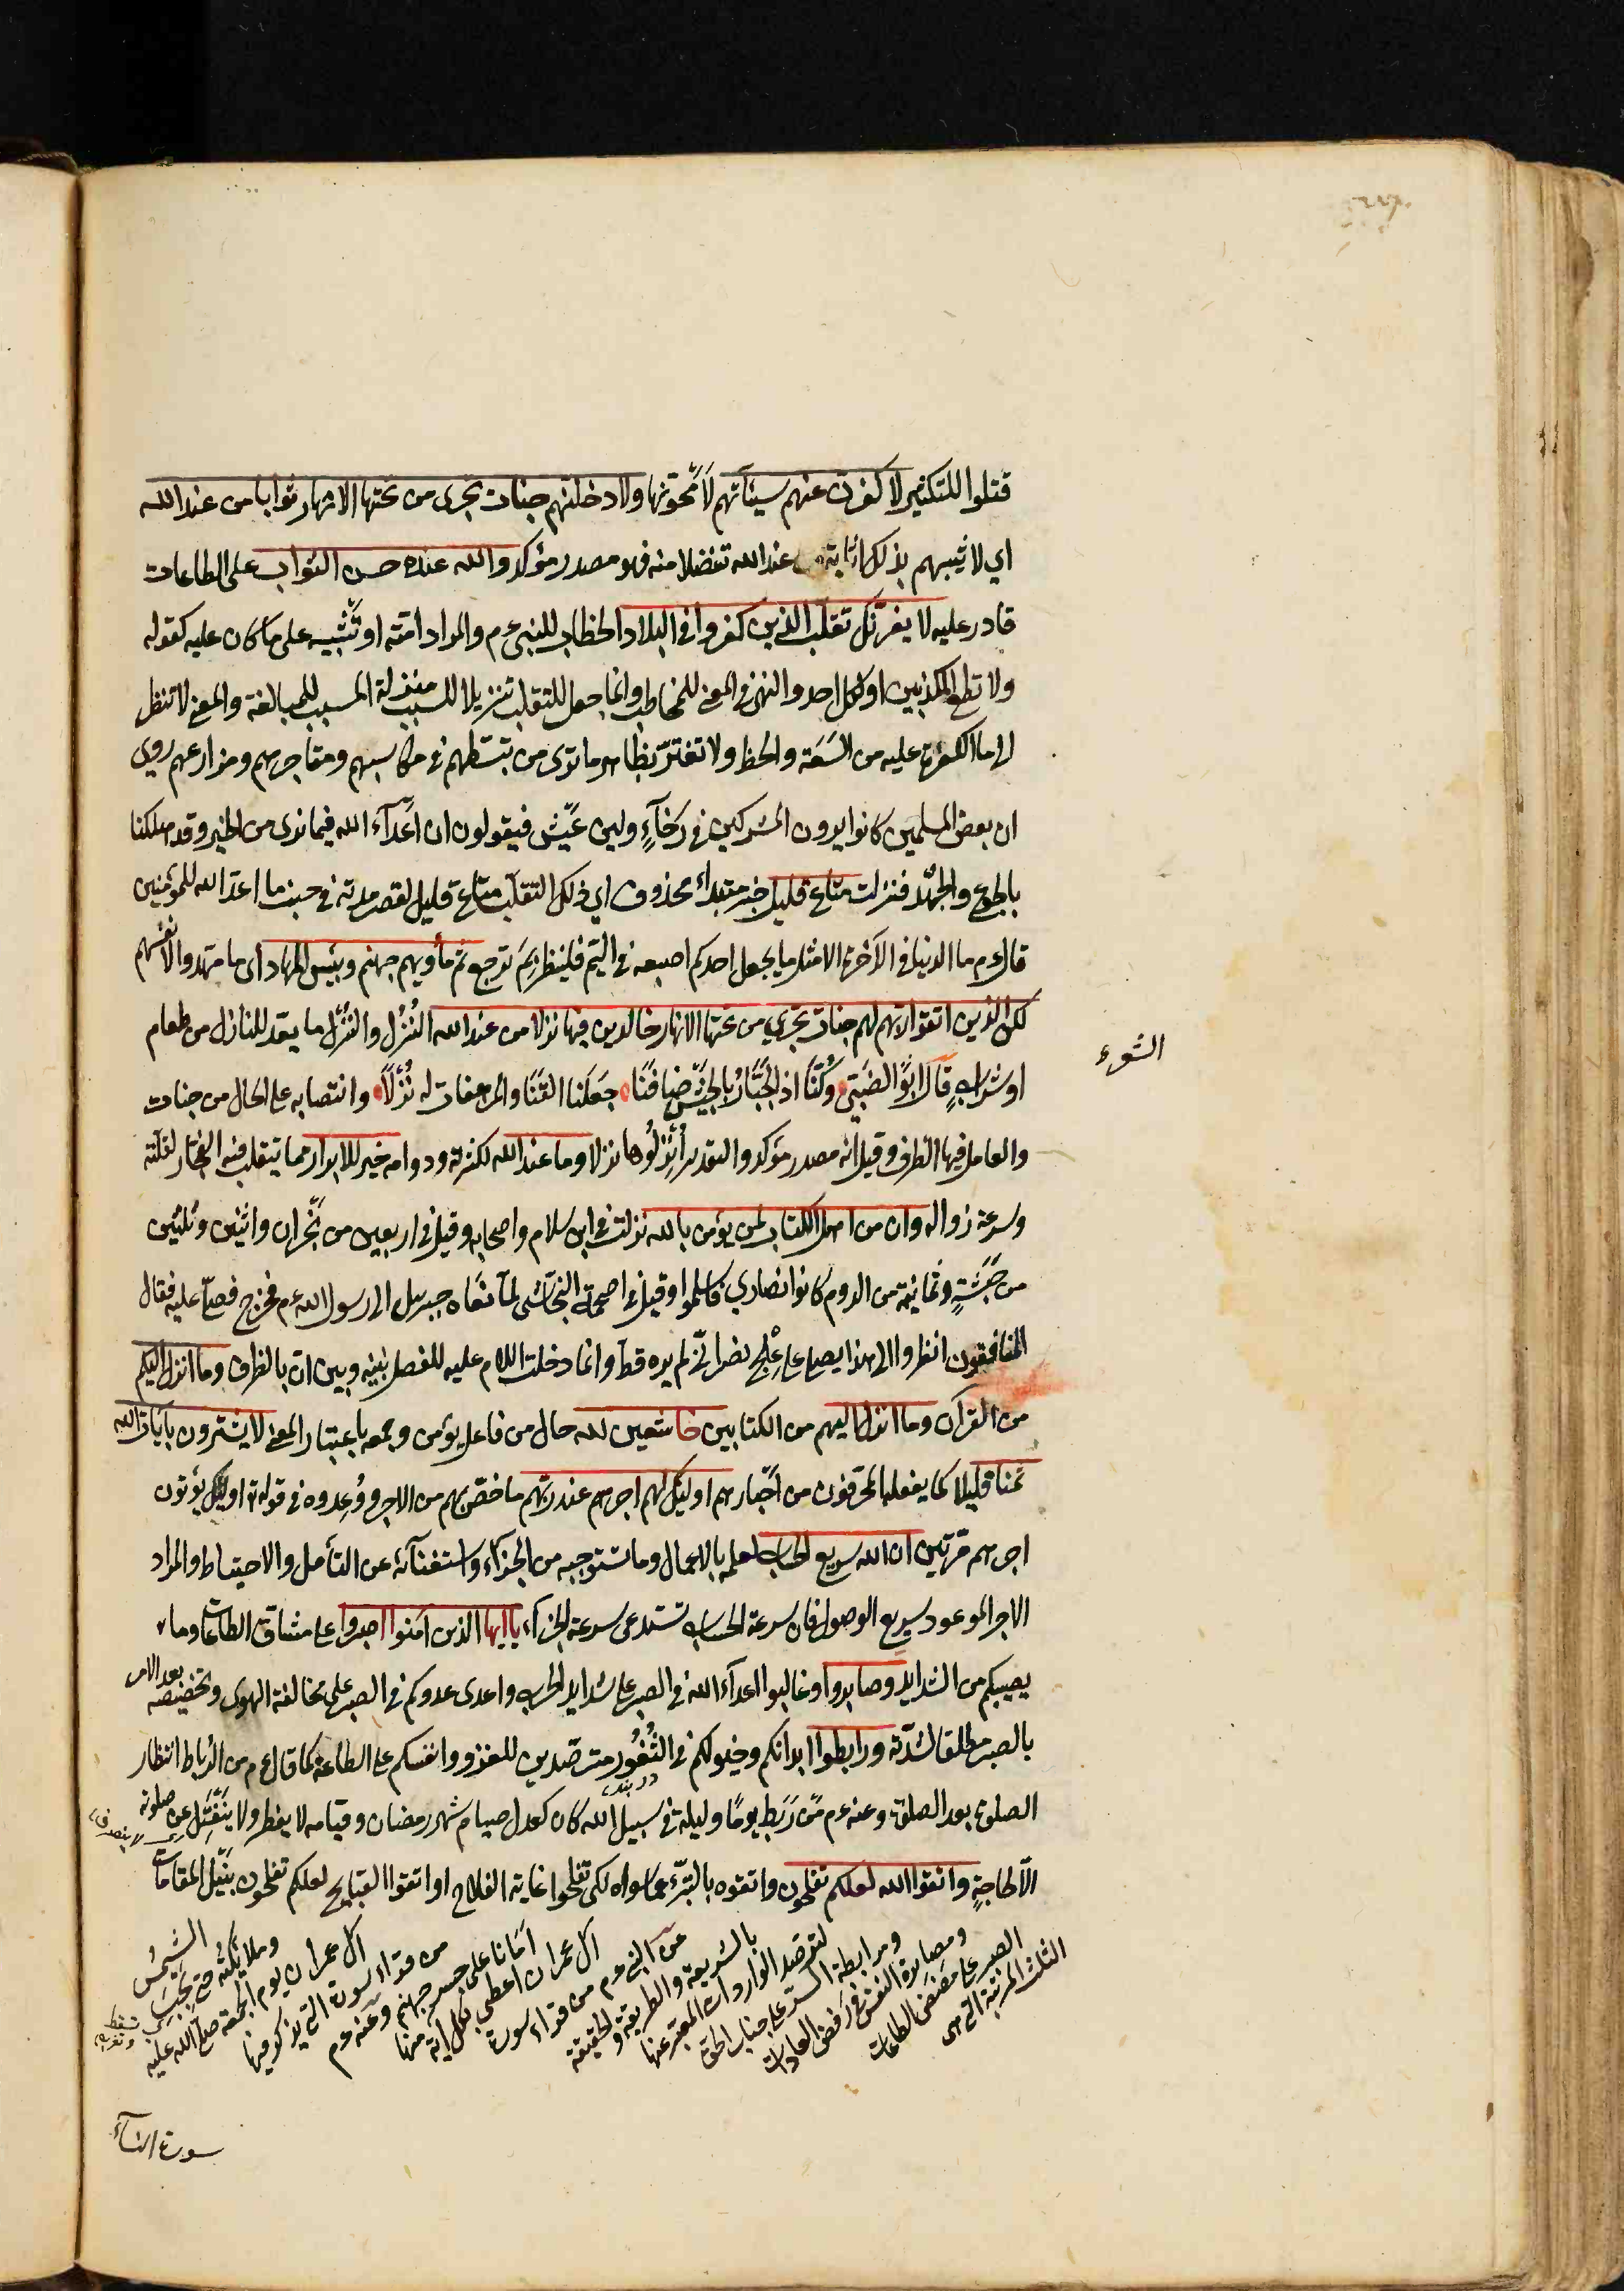 قتلوا للتكثير لاكفرن عنهم سيئاتهم لأمحونها ولادخلنهم جنات تجرى من تحتها الانهار ثوابا من عند الله
اي لاثيبهم بذلك اثابة من عند الله تفضلا منه فهو مصدر مؤكد والله عنده حسن الثواب على الطاعات
قادر عليه لا يغرنك تقلب الذين كفروا فى البلاد الخطاب للنبى ءم والمراد امته او تثبيته على ما كان عليه كقوله
ولا تطع المكذبين او لكل احد والنهى فى المعنى للمخاطب وانما جعل للتقلب تنزيلا للسبب منزلة المسبب للمبالغة والمعنى لا تنظر
الى ما الكفرة عليه من السعة والحظ ولا تغتر بظاهر ما ترى من تبسطهم فى مكاسبهم ومتاجرهم ومزارعهم روى
ان بعض المسلمين كانوا يرون المشركين فى رخآء ولين عيش فيقولون ان اعدآء الله فيما نرى من الخير وقد هلكنا
بالجوع والجهد فنزلت متاع قليل خبر مبتداء محذوف اي ذلك التقلب متاع قليل لقصر مدته فى جنب ما اعد الله للمؤمنين
قال ءم ما الدنيا فى الآخرة الا مثل ما يجعل احدكم اصبعه فى اليم فلينظر بم ترجع ثم مأويهم جهنم وبئس المهاد اى ما مهدوا لانفسهم
لكن الذين اتقوا ربهم لهم جنات تجري من تحتها الانهار خالدين فيها نزلا من عند الله النُزُل والنُزْل ما يعد للنازل من طعام
او شراب قال ابو الضبى وكنا اذ الجبار بالجيش ضافنا جعلنا القنا والمرهفات له نُزْلاً وانتصابه على الحال من جنات
والعامل فيها الظرف وقيل انه مصدر مؤكد والتقدير أُنزلوها نزلا وما عند الله لكثرته ودوامه خير للابرار مما يتقلب فيه الفجار لقلته
وسرعة زواله وان من اهل الكتاب لمن يؤمن بالله نزلت فى ابن سلام واصحابه وقيل فى اربعين من نجران واثنين وثلثين
من حبشة وثمانية من الروم كانوا نصارى فاسلموا وقيل فى اصحمة النجاشى لما نعاه جبريل الى رسول الله ءم فخرج فصلى عليه فقال
المنافقون انظروا الى هذا يصلى على علج نصرانى لم يره قط وانما دخلت اللام عليه للفصل بينه وبين ان بالظرف وما انزل اليكم
من القرآن وما انزل اليهم من الكتابين خاشعين لله حال من فاعل يؤمن وجمعه باعتبار المعنى لا يشترون بآيات الله
ثمنا قليلا كما يفعله المحرفون من احبارهم اولئك لهم اجرهم عند ربهم ما خص بهم من الاجر ووعدوه فى قوله تع اولئك يؤتون
اجرهم مرتين ان الله سريع الحساب لعلمه بالاعمال وما تستوجبه من الجزآء واستغنآئه عن التأمل والاحتياط والمراد
الاجر الموعود سريع الوصول فان سرعة الحساب تستدعى سرعة الجزآء ياايها الذين آمنوا اصبروا على مشاق الطاعات وما
يصيبكم من الشدايد وصابروا وغالبوا اعدآء الله فى الصبر على شدايد الحرب واعدى عدوكم فى الصبر على مخالفة الهوى وتخصيصه بعد الامر
بالصبر مطلقا لشدته ورابطوا ابدانكم وخيولكم فى الثُغُور مترصدين للغزو وانفسكم على الطاعة كما قال ءم من الرباط انتظار
الصلوة بعد الصلوة وعنه ءم من رَبَط يومًا وليلة فى سبيل الله كان كعدل صيام شهر رمضان وقيامه لا يفطر ولا ينفتل عن صلوته
الا لحاجة واتقوا الله لعلكم تفلحون واتقوه بالتبرئ عما سواه لكى تفلحوا غاية الفلاح او اتقوا القبايح لعلكم تفلحون بنيل المقامات
الثلث المرتبة التى هى
الصبر على مضض الطاعات
ومصابرة النفس فى رفض العادات
ومرابطة السر على جناب الحق
لترصد الواردات المعبر عنها
بالشريعة والطريقة والحقيقة
عن النبى ءم من قراء سورة
آل عمران اعطى بكل آية منها
امانا على جسر جهنم وعنه ءم
من قراء سورة التى يذكر فيها
آل عمران يوم الجمعة صلى الله عليه
وملائكته حتى تجب
الشمس
سورة النسآء